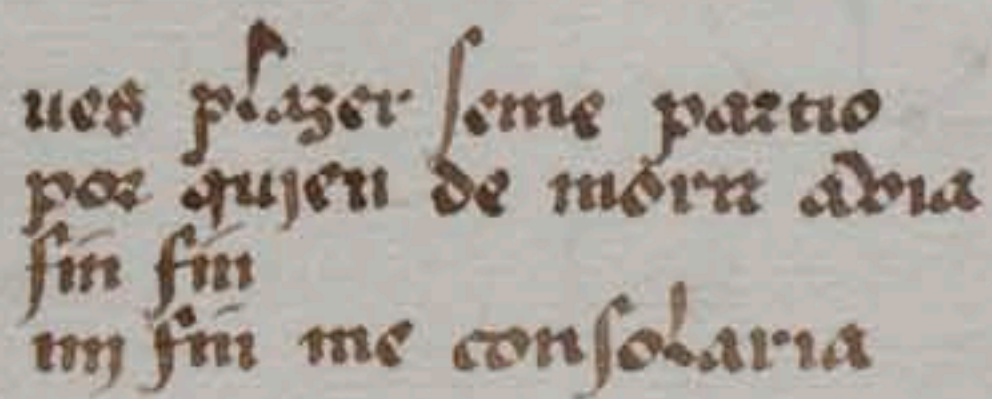 ues plazer seme partio
por quien de morir auia
fin fin
mj fin me consolaria